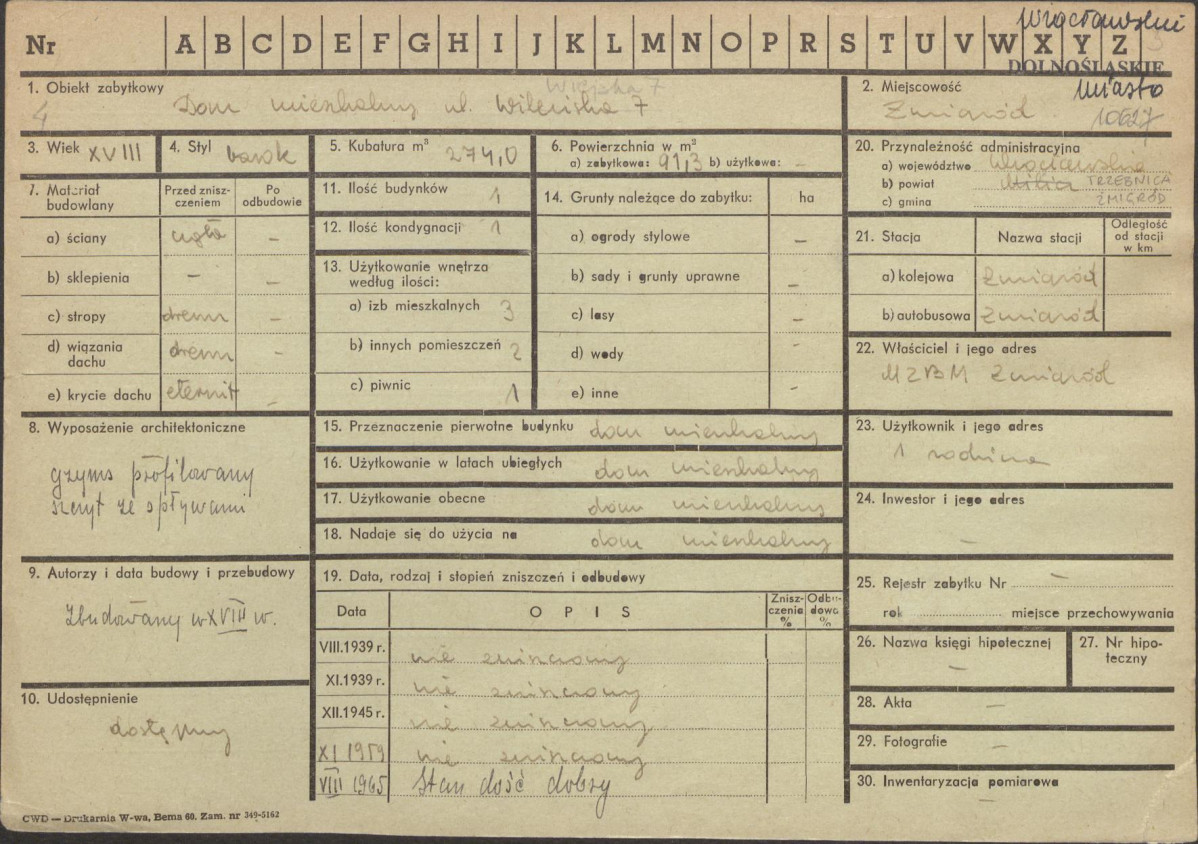 Nr A B C D E F G H I J K L M N O P R S T U V W X Y Z
Wrocławskie
DOLNOŚLĄSKIE
miasto
10627
4
1. Obiekt zabytkowy
Wiejska 7
Dom mieszkalny ul. Wileńska 7
2. Miejscowość
Żmigród
3. Wiek XVIII
4. Styl barok
5. Kubatura m³ 274,0
6. Powierzchnia w m²
a) zabytkowa: 91,3 b) użytkowa: –
20. Przynależność administracyjna
a) województwo Wrocławskie
b) powiat Milicz TRZEBNICA
c) gmina ŻMIGRÓD
7. Materiał budowlany
Przed zniszczeniem
Po odbudowie
a) ściany cegła –
b) sklepienia – –
c) stropy drewn –
d) wiązania dachu drewn –
e) krycie dachu eternit –
11. Ilość budynków 1
12. Ilość kondygnacji 1
13. Użytkowanie wnętrza
według ilości:
a) izb mieszkalnych 3
b) innych pomieszczeń 2
c) piwnic 1
14. Grunty należące do zabytku: ha
a) ogrody stylowe –
b) sady i grunty uprawne –
c) lasy –
d) wody –
e) inne –
21. Stacja
Nazwa stacji
Odległość
od stacji
w km
a) kolejowa Żmigród
b) autobusowa Żmigród
22. Właściciel i jego adres
MZBM Żmigród
8. Wyposażenie architektoniczne
gzyms profilowany
szczyt ze spływami
15. Przeznaczenie pierwotne budynku dom mieszkalny
16. Użytkowanie w latach ubiegłych dom mieszkalny
17. Użytkowanie obecne dom mieszkalny
18. Nadaje się do użycia na dom mieszkalny
23. Użytkownik i jego adres
1 rodzina
24. Inwestor i jego adres
–
9. Autorzy i data budowy i przebudowy
Zbudowany w XVIII w.
10. Udostępnienie
dostępny
19. Data, rodzaj i stopień zniszczeń i odbudowy
Data
OPIS
Zniszczenia %
Odbudowa %
VIII.1939 r. nie zniszczony
XI.1939 r. nie zniszczony
XII.1945 r. nie zniszczony
XI 1959 nie zniszczony
VIII 1965 Stan dość dobry
25. Rejestr zabytku Nr –
rok miejsce przechowywania
26. Nazwa księgi hipotecznej
–
27. Nr hipoteczny
28. Akta –
29. Fotografie –
30. Inwentaryzacja pomiarowa
–
CWD — Drukarnia W-wa, Bema 60. Zam. nr 349-5162